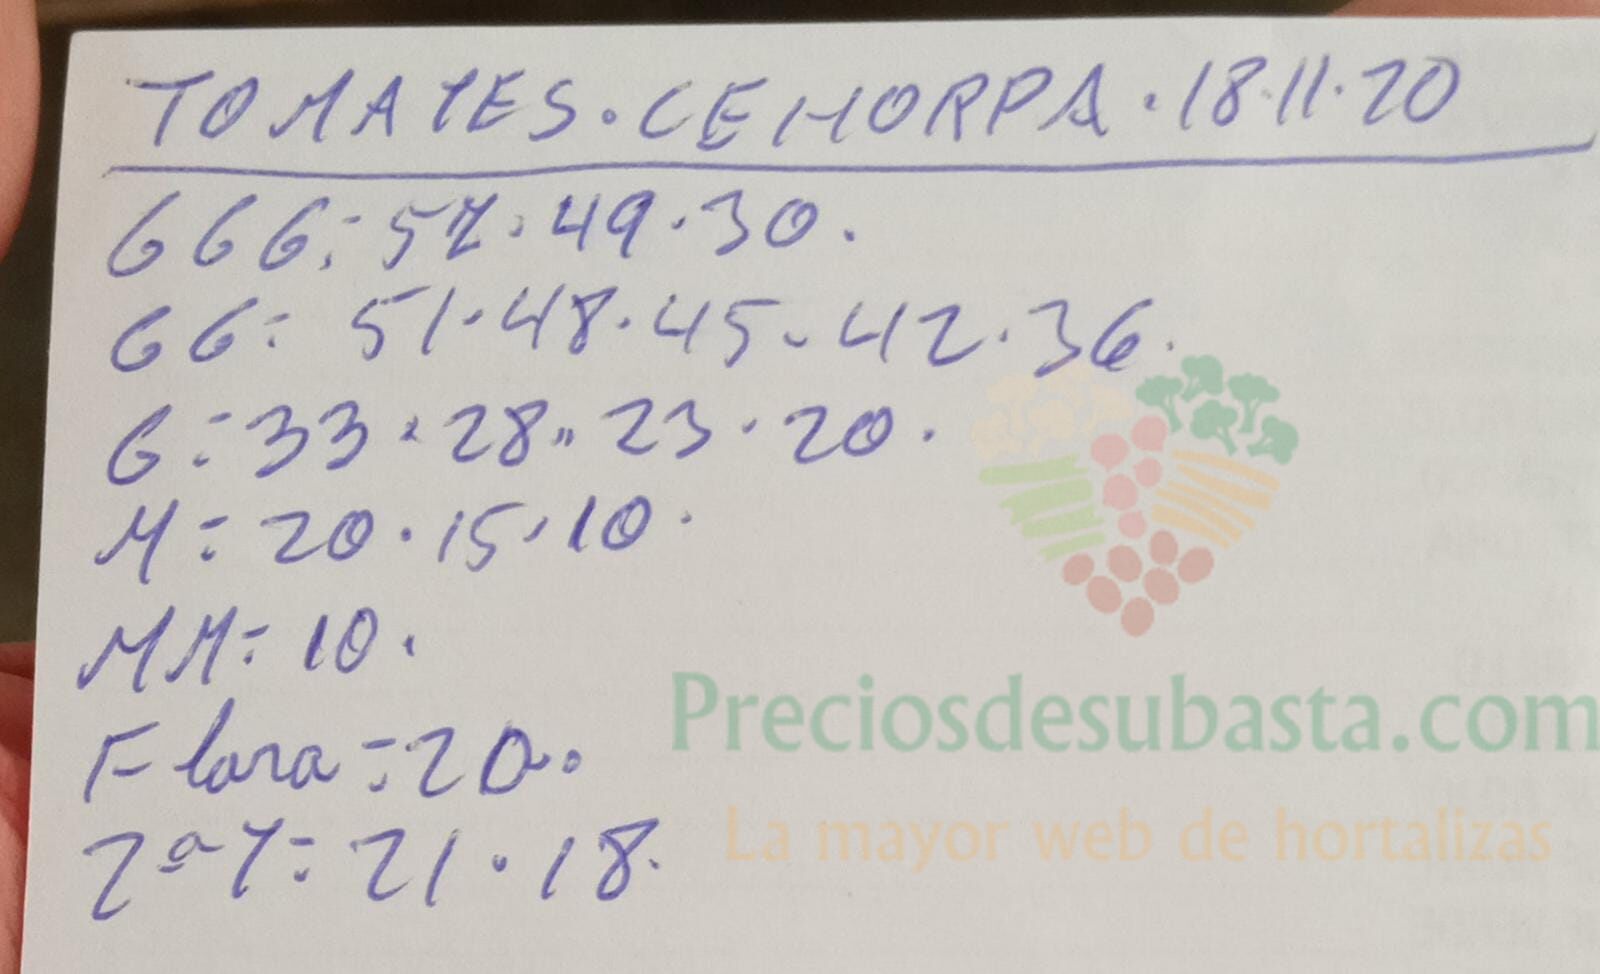 TOMATES. CEHORPA. 18.11.20
GGG: 52. 49. 30.
GG: 51. 48. 45. 42. 36.
G: 33. 28. 23. 20.
M: 20. 15. 10.
MM: 10.
Flora: 20.
2ª T: 21. 18.
Preciosdesubasta.com
La mayor web de hortalizas